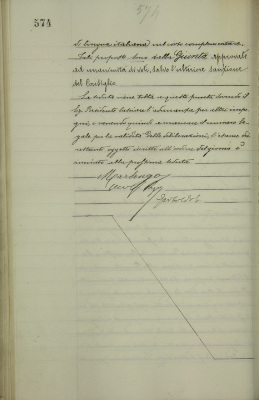 574
574
di lingua italiana nel corso complementare.
Tale proposta viene dalla Giunta approvata
ad unanimità di voti, salvo l'ulteriore sanzione
del Consiglio.
La seduta viene tolta a questo punto, dovendo il
Sig. Presidente
e venendo quindi a mancare il numero le-
gale per la validità delle deliberazioni, l'esame dei
restanti oggetti iscritti all'ordine del giorno è
rinviato alla prossima seduta